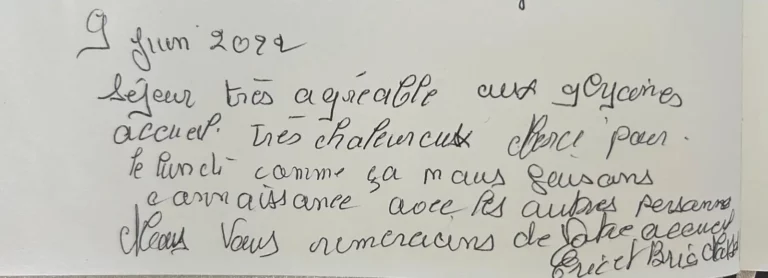 9 Juin 2022
Séjour très agréable aux glycines
accueil. très chaleureux Merci pour
le punch comme ça nous faisons
connaissance avec les autres personnes
Nous vous remercions de votre accueil
Eric et